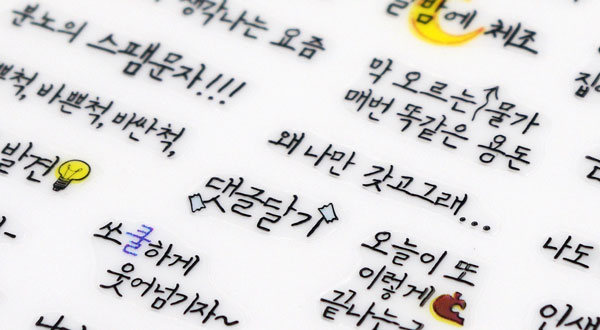 생각나는 요즘
밤에 체조
분노의 스팸문자!!!
막 오르는 물가
매번 똑같은 용돈
바쁜척, 바싼척,
왜 나만 갖고그래...
발견
댓글달기
쏘쿨하게
웃어넘기자~
오늘이 또
이렇게
끝나는
나도